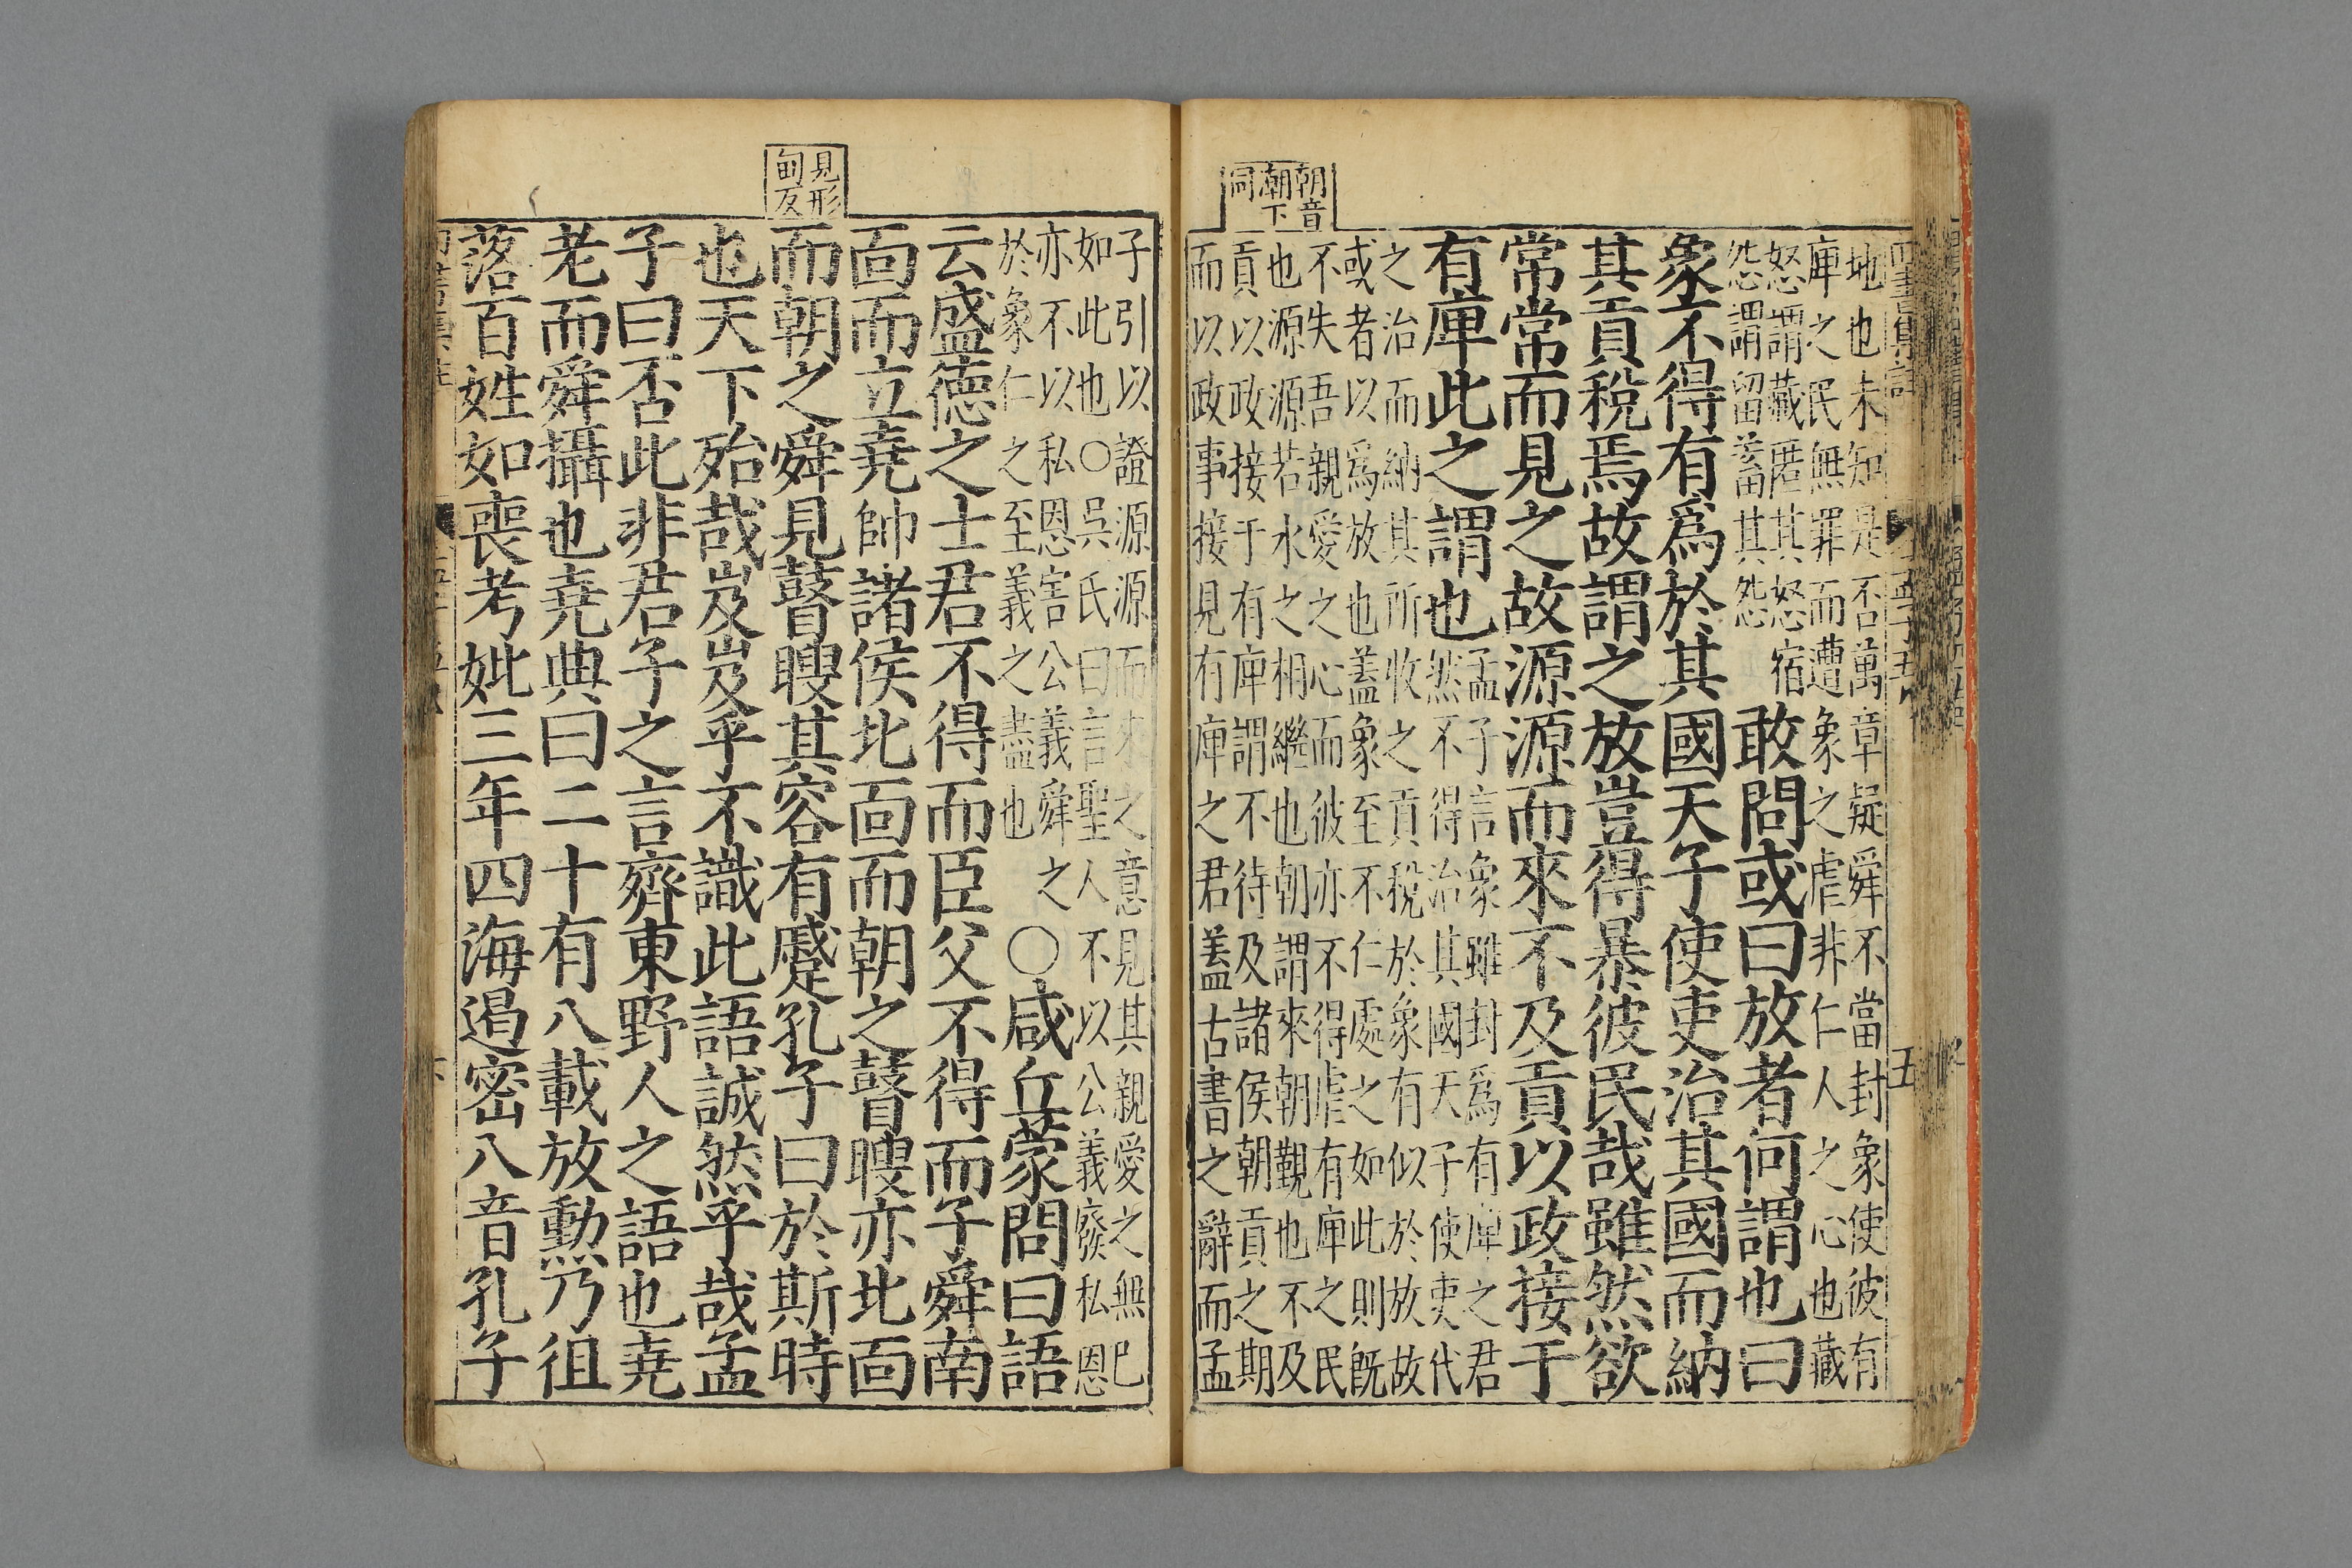 朝音
朝下
同
地也未知是否萬章疑舜不當封象使彼有
庳之民無罪而遭象之虐非仁人之心也藏
怒謂藏匿其怒宿
怨謂留蓄其怨
敢問或曰放者何謂也曰
象不得有爲於其國天子使吏治其國而納
其貢稅焉故謂之放豈得暴彼民哉雖然欲
常常而見之故源源而來不及貢以政接于
有庳此之謂也
孟子言象雖封爲有庳之君
然不得治其國天子使吏代
之治而納其所收之貢稅於象有似於放故
或者以爲放也蓋象至不仁處之如此則旣
不失吾親愛之心而彼亦不得虐有庳之民
也源源若水之相繼也朝謂來朝覲也不及
貢以政接于有庳謂不待及諸侯朝貢之期
而以政事接見有庳之君蓋古書之辭而孟
見形
甸反
子引以證源源而來之意見其親愛之無已
如此也○吳氏曰言聖人不以公義廢私恩
亦不以私恩害公義舜之
於象仁之至義之盡也
○咸丘蒙問曰語
云盛德之士君不得而臣父不得而子舜南
面而立堯帥諸侯北面而朝之瞽瞍亦北面
而朝之舜見瞽瞍其容有蹙孔子曰於斯時
也天下殆哉岌岌乎不識此語誠然乎哉孟
子曰否此非君子之言齊東野人之語也堯
老而舜攝也堯典曰二十有八載放勳乃徂
落百姓如喪考妣三年四海遏密八音孔子